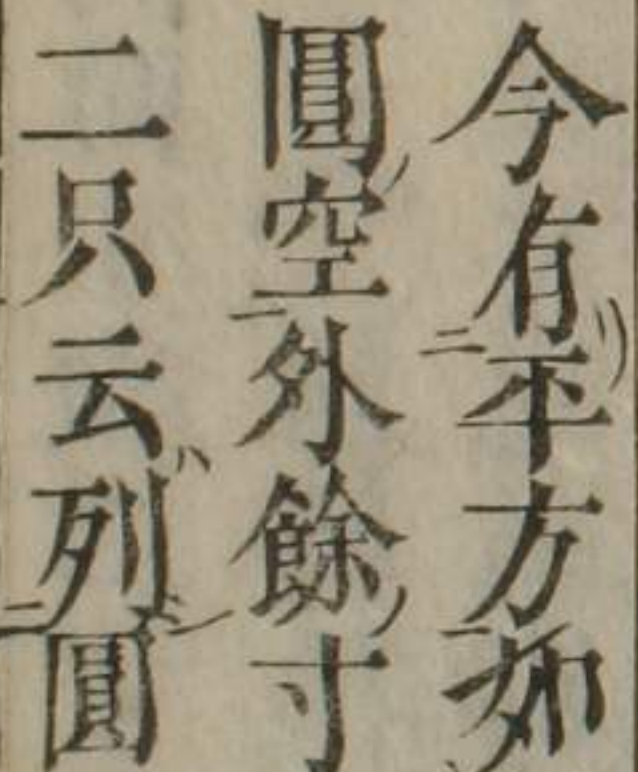 今有平方如
圓空外餘寸
二只云列圓